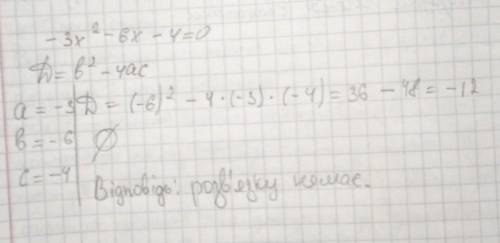 -3x² - 6x - 4 = 0
D = b² - 4ac
a = -3 D = (-6)² - 4 · (-3) · (-4) = 36 - 48 = -12
b = -6 ∅
c = -4
Відповідь: розв'язку немає.